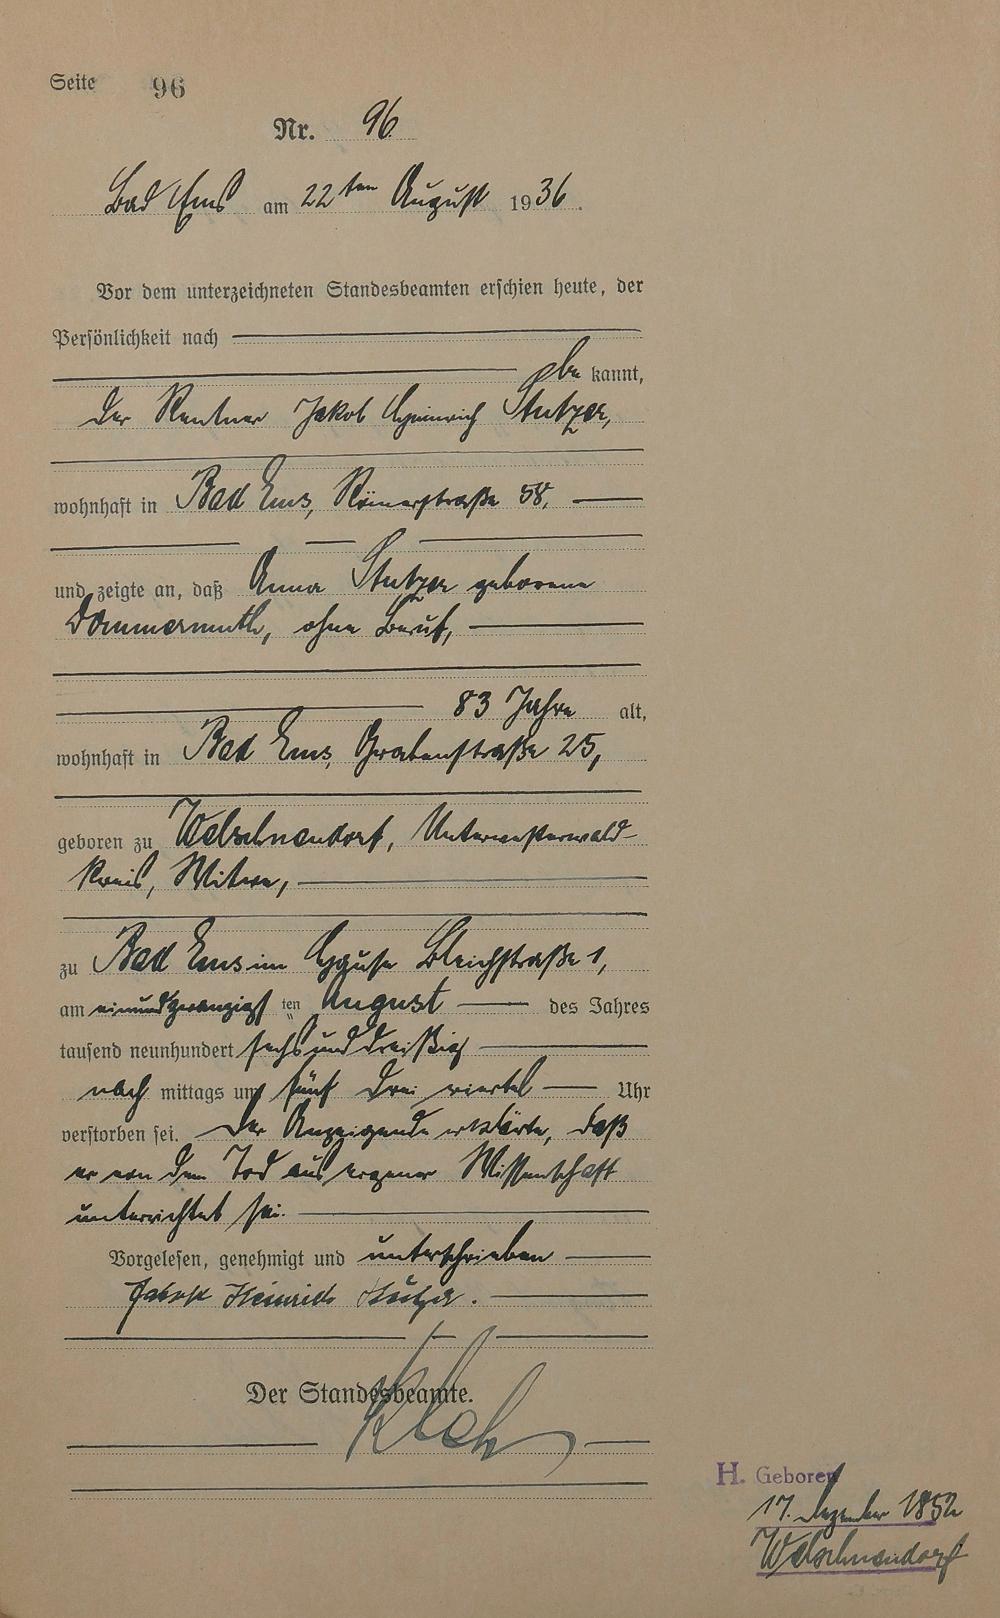 Seite 96
Nr. 96
Bad Ems am 22ten August 1936.
Vor dem unterzeichneten Standesbeamten erschien heute, der
Persönlichkeit nach
be kannt,
der Rentner Jakob Heinrich Stutzer,
wohnhaft in Bad Ems, Römerstraße 58,
und zeigte an, daß Anna Stutzer geborene
Dommermuth, ohne Beruf,
83 Jahre alt,
wohnhaft in Bad Ems, Grabenstraße 25,
geboren zu Welschneudorf, Unterwesterwald-
kreis, Witwe,
zu Bad Ems im Hause Bleichstraße 1,
am einundzwanzigsten August des Jahres
tausend neunhundert sechsunddreißig
nach mittags um fünf drei viertel Uhr
verstorben sei. Der Anzeigende erklärte, daß
er von dem Tod aus eigener Wissenschaft
unterrichtet sei.
Vorgelesen, genehmigt und unterschrieben
Jakob Heinrich Stutzer.
Der Standesbeamte.
H. Geboren
17. Dezember 1852
Welschneudorf